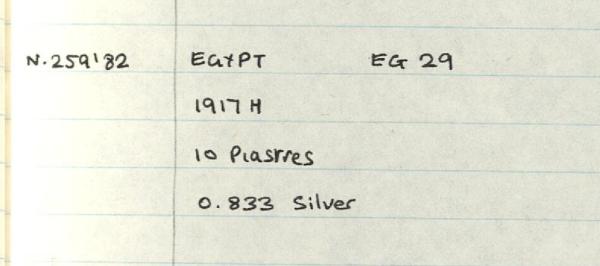 N.259'82 EGYPT EG 29
1917 H
10 Piastres
0.833 Silver